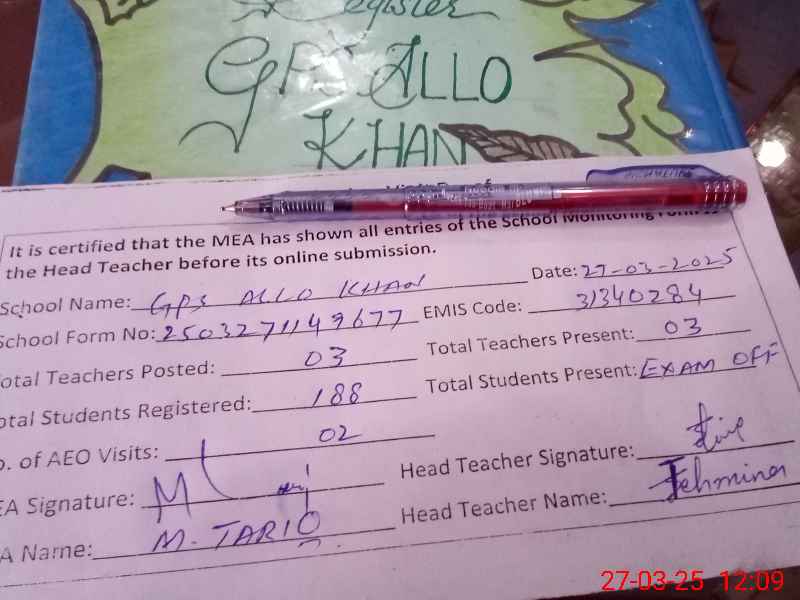 Register
GPS ALLO
KHAN
It is certified that the MEA has shown all entries of the School Monitoring
the Head Teacher before its online submission.
School Name: GPS ALLO KHAN Date: 27-03-2025
School Form No: 2503271149677 EMIS Code: 31340284
otal Teachers Posted: 03 Total Teachers Present: 03
otal Students Registered: 188 Total Students Present: EXAM OFF
o. of AEO Visits: 02
EA Signature: Head Teacher Signature:
A Name: M. TARIQ Head Teacher Name: Tehmina
27-03-25 12:09